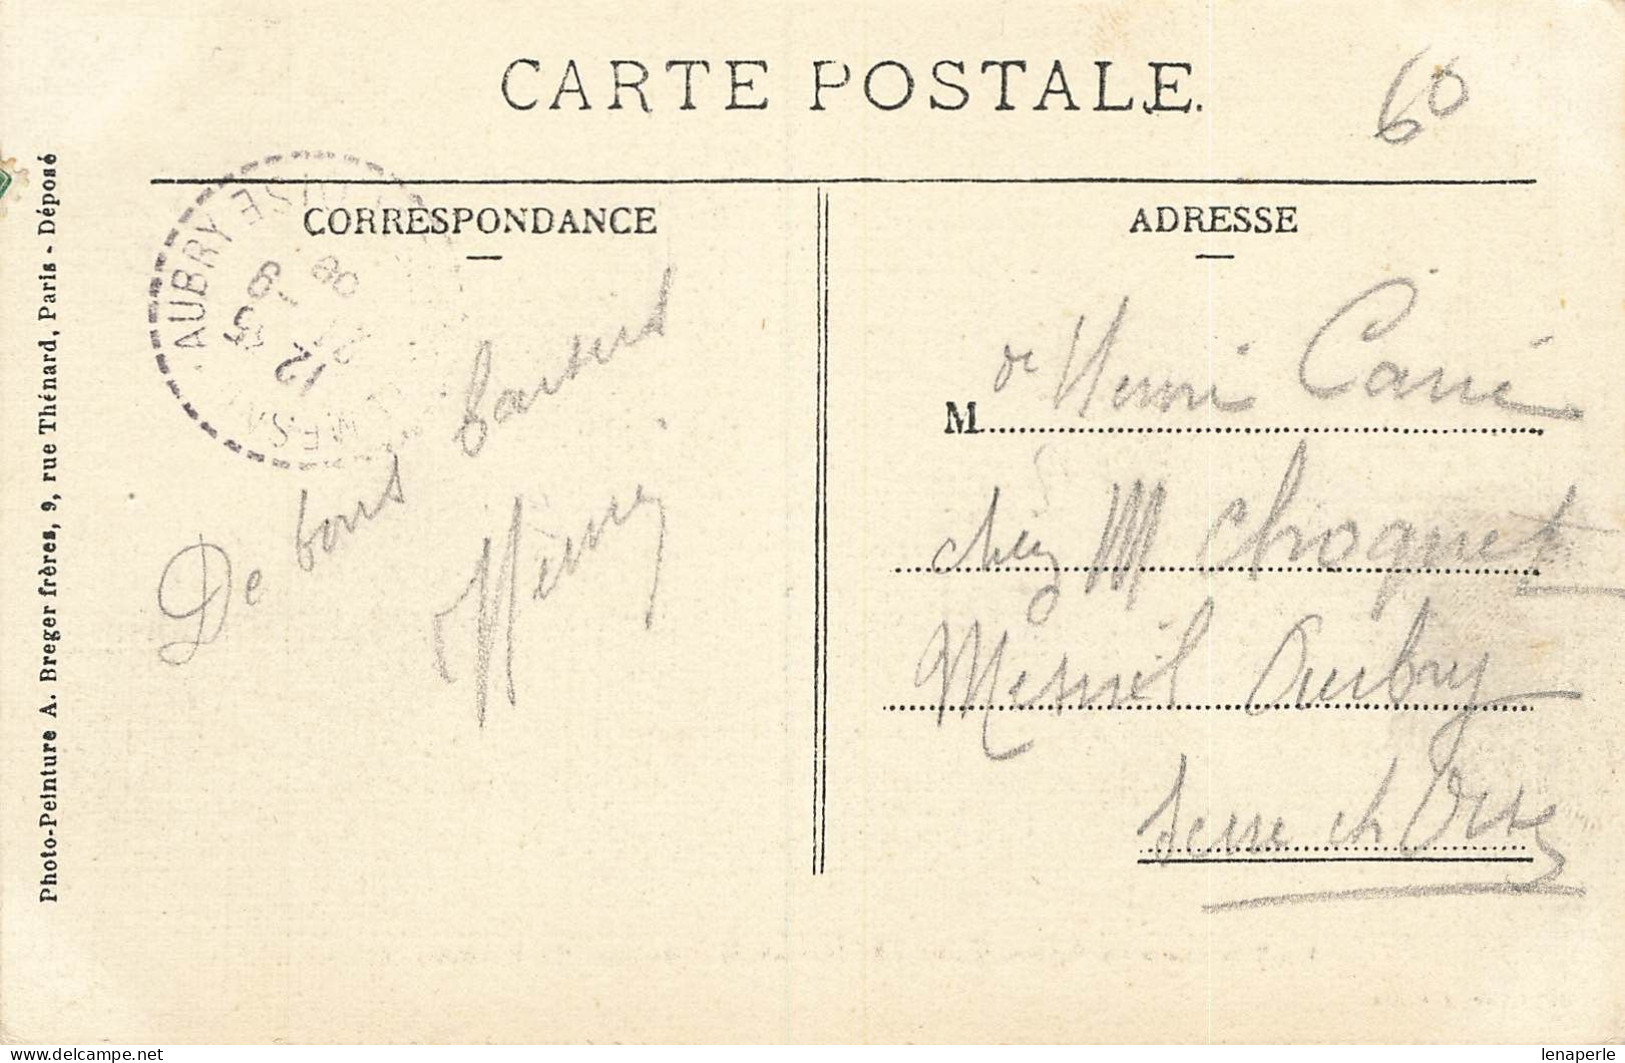 CARTE POSTALE.
60
CORRESPONDANCE
De bons baisers
Henri
ADRESSE
M Henri Carré
chez M Choquet
Mesnil Aubry
Seine et Oise
AUBRY
12
Photo-Peinture A. Breger frères, 9, rue Thénard, Paris - Déposé
lenaperle